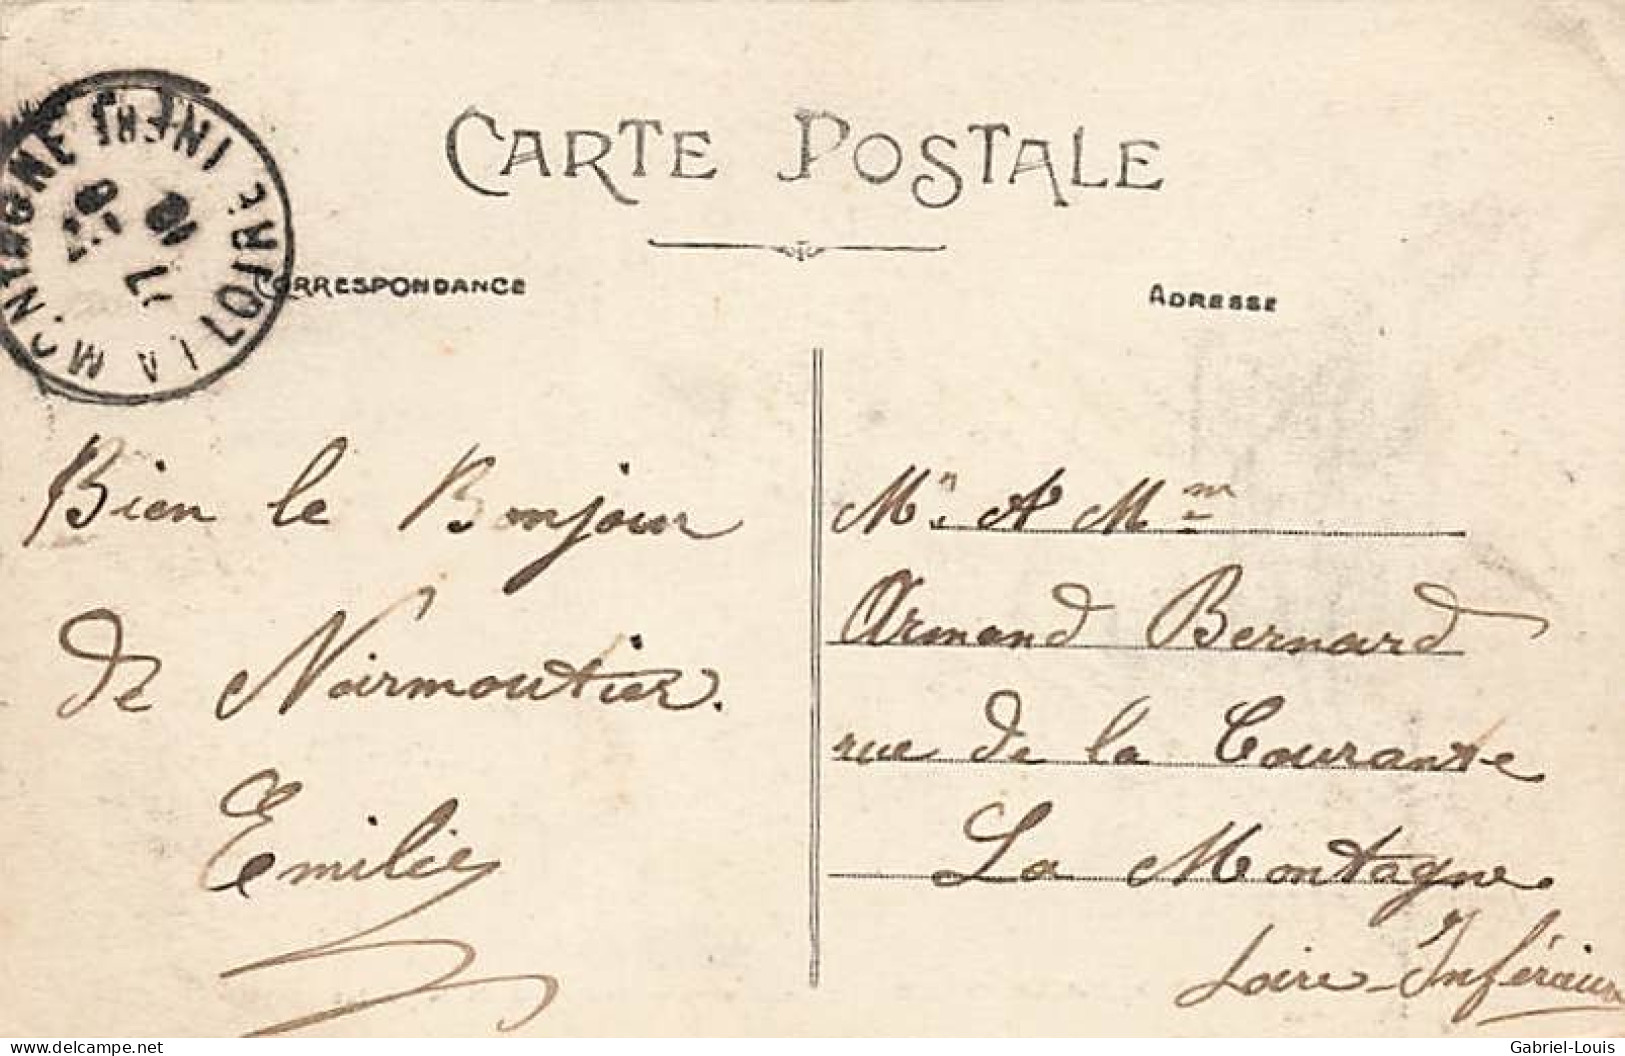 CARTE POSTALE
CORRESPONDANCE
ADRESSE
LA MONTAGNE
LOIRE INFERE
Bien le Bonjour
de Noirmoutier.
Emilie
Mr. & Mme
Armand Bernard
rue de la Courante
La Montagne.
Loire-Inférieure
delcampe.net
Gabriel-Louis